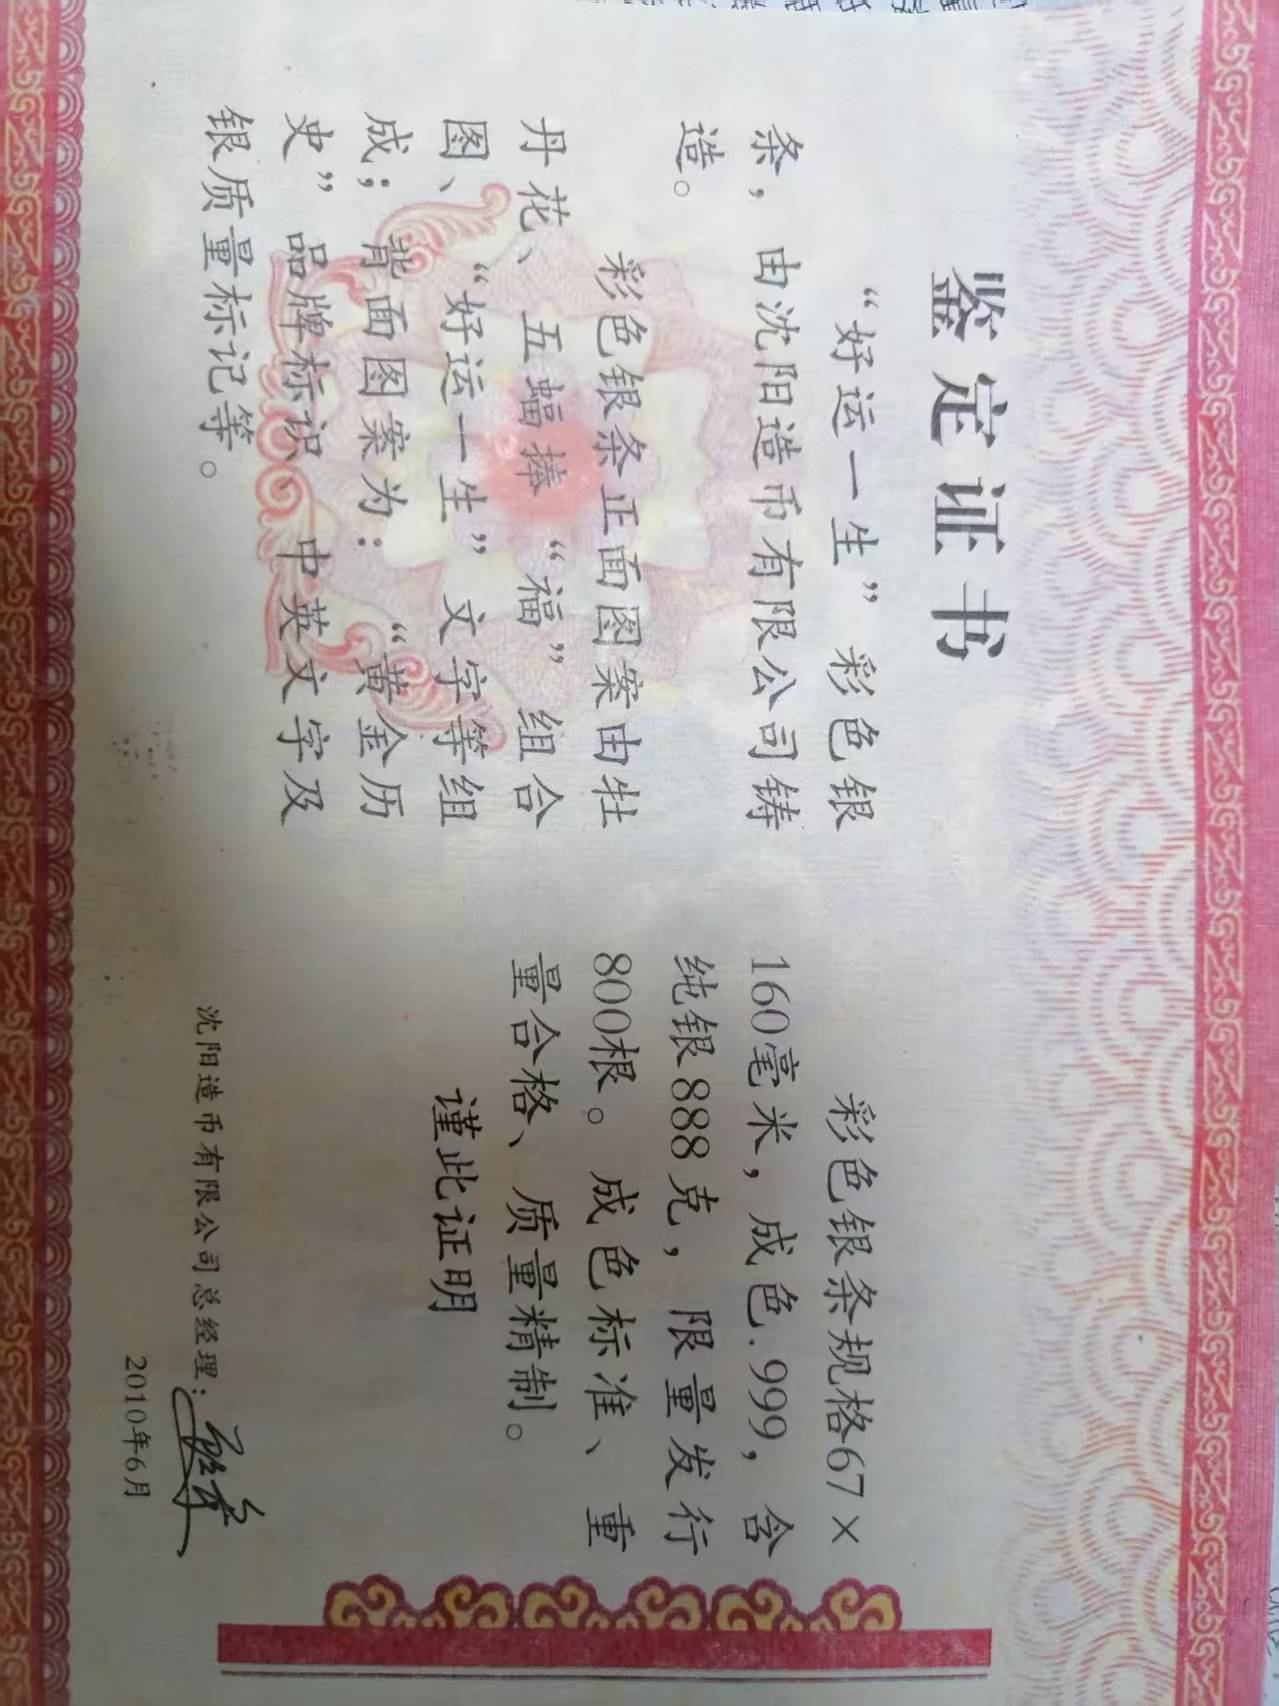 鉴定证书
“好运一生”彩色银
条，由沈阳造币有限公司铸
造。
彩色银条正面图案由牡
丹花、五蝠捧“福”组合
图、“好运一生”文字等组
成；背面图案为：“黄金历
史”品牌标识、中英文字及
银质量标记等。
彩色银条规格67×
160毫米，成色.999，含
纯银888克，限量发行
800根。成色标准、重
量合格、质量精制。
谨此证明
沈阳造币有限公司总经理：
2010年6月